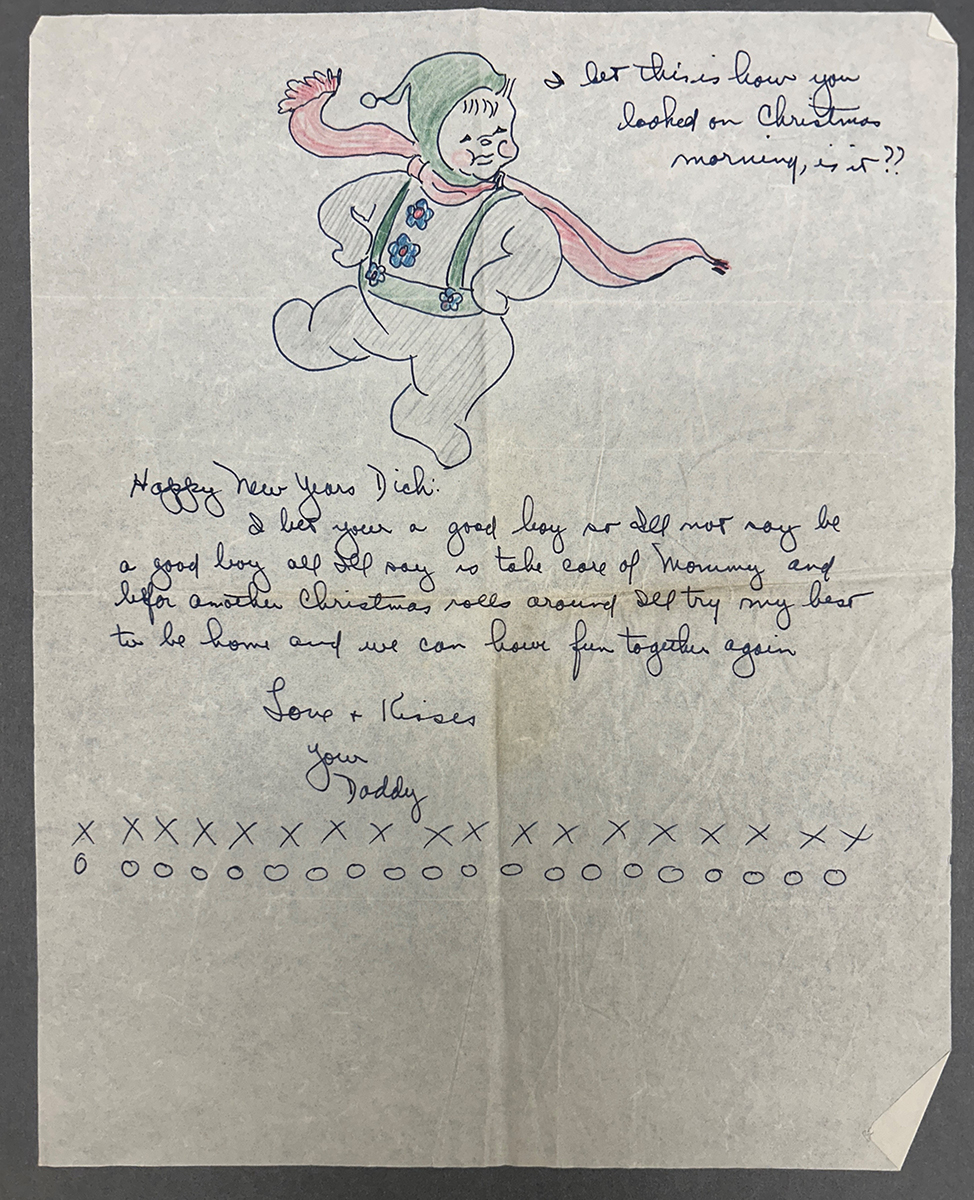 I bet this is how you
looked on Christmas
morning, is it??
Happy New Years Dick:
I bet your a good boy so Ill not say be
a good boy all Ill say is take care of Mommy and
befor another Christmas rolls around Ill try my best
to be home and we can have fun together again
Love + Kisses
Your
Daddy
X X X X X X X X X X X X X X X X X X
O O O O O O O O O O O O O O O O O O O